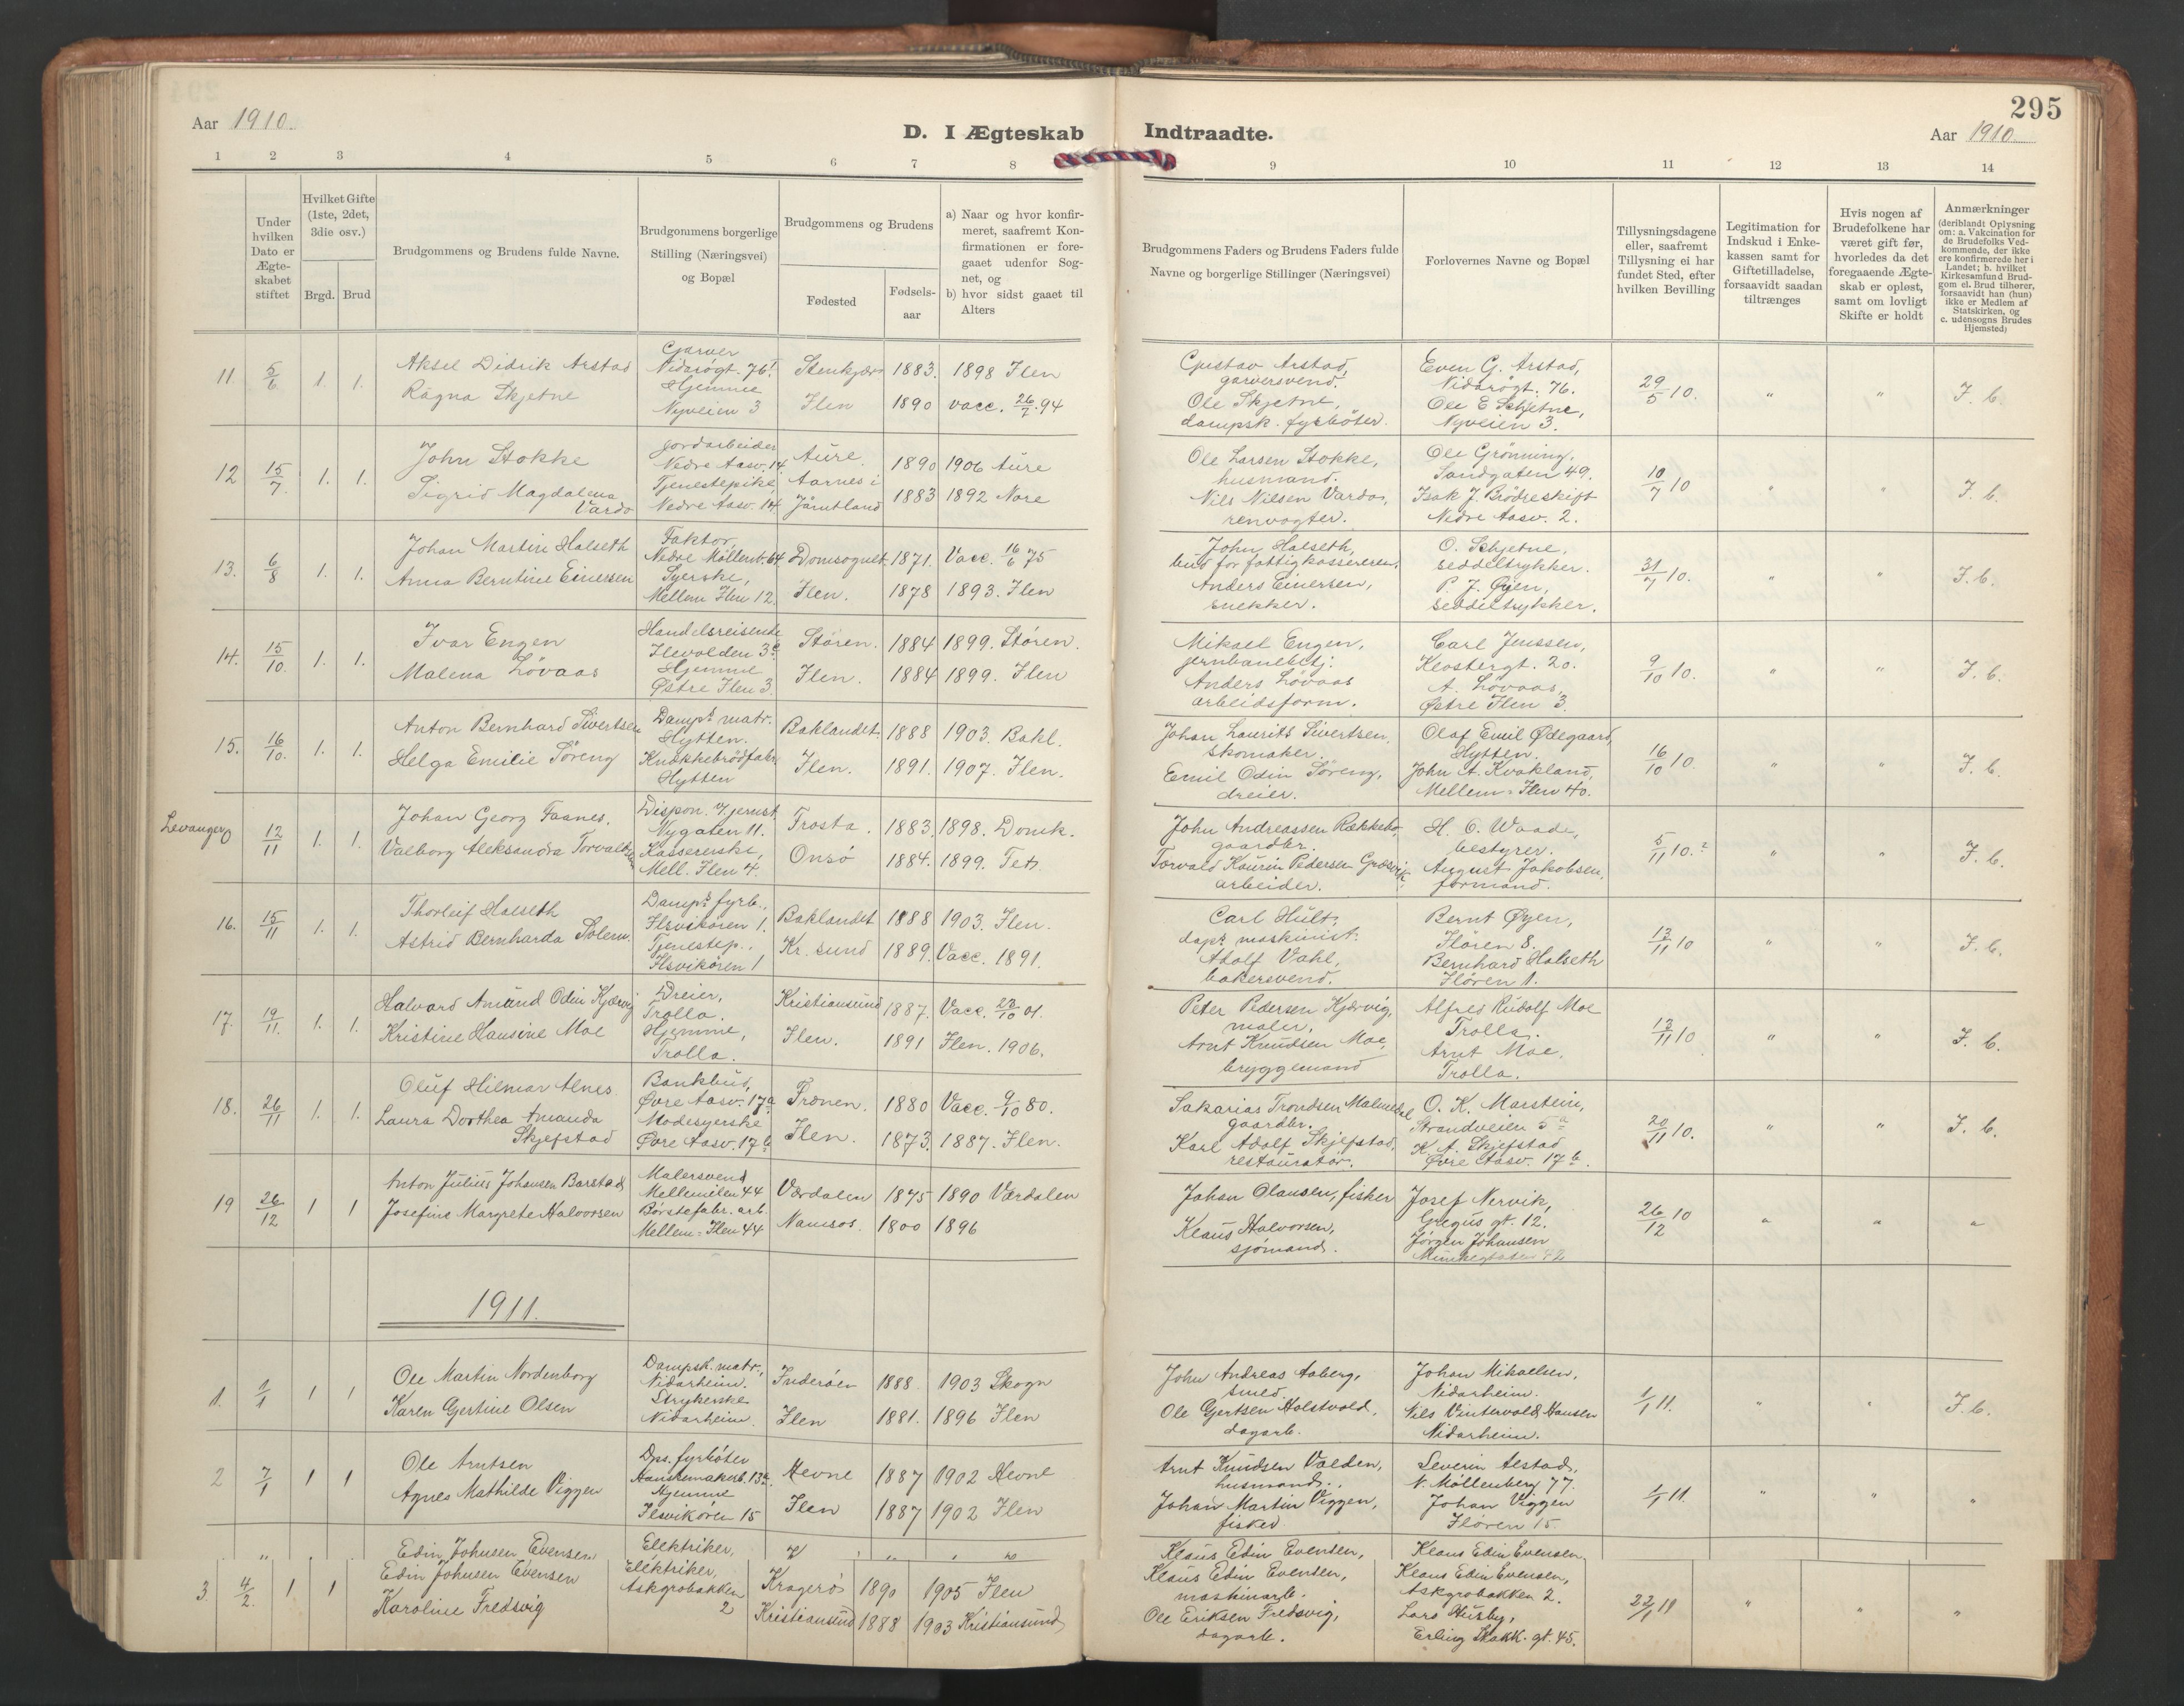 295
Aar 1910.
D. I Ægteskab Indtraadte.
Aar 1910
1 2 3 4 5 6 7 8 9 10 11 12 13 14
Under hvilken Dato er Ægteskabet stiftet
Hvilket Gifte (1ste, 2det, 3die osv.)
Brgd. Brud
Brudgommens og Brudens fulde Navne.
Brudgommens borgerlige Stilling (Næringsvei) og Bopæl
Brudgommens og Brudens
Fødested
Fødsels-aar
a) Naar og hvor konfir-
meret, saafremt Kon-
firmationen er fore-
gaaet udenfor Sog-
net, og
b) hvor sidst gaaet til
Alters
Brudgommens Faders og Brudens Faders fulde
Navne og borgerlige Stillinger (Næringsvei)
Forlovernes Navne og Bopæl
Tillysningsdagene
eller, saafremt
Tillysning ei har
fundet Sted, efter
hvilken Bevilling
Legitimation for
Indskud i Enke-
kassen samt for
Giftetilladelse,
forsaavidt saadan
tiltrænges
Hvis nogen af
Brudefolkene har
været gift før,
hvorledes da det
foregaaende Ægte-
skab er opløst,
samt om lovligt
Skifte er holdt
Anmærkninger
(deriblandt Oplysning
om: a. Vakcination for
de Brudefolks Ved-
kommende, der ikke
ere konfirmerede her i
Landet; b. hvilket
Kirkesamfund Brud-
gom el. Brud tilhører,
forsaavidt han (hun)
ikke er Medlem af
Statskirken, og
c. udensogns Brudes
Hjemsted)
11. 5/6 1. 1.
Aksel Didrik Arstad
Ragna Skjetne
Garver
Nidarøgt. 76I
Hjemme
Nyveien 3
Stenkjær 1883. 1898 Ilen
Ilen 1890 vacc. 26/7.94
Gustav Arstad,
garversvend.
Ole Skjetne,
dampsk. fyrbøter.
Even G. Arstad,
Nidarøgt. 76.
Ole E Schjetne,
Nyveien 3.
29/5 10. " " J. b.
12 15/7. 1. 1.
John Stokke
Sigrid Magdalena
Vardo
Jordarbeider
Nedre Aasv. 14.
Tjenestepike
Nedre Aasv. 14.
Aure. 1890 1906 Aure
Aarnes i
Jämtland 1883 1892 Nore
Ole Larsen Stokke,
husmand.
Nils Nilsen Vardo,
renvogter.
Ole Grönning,
Sandgaten 49.
Isak J. Brödreskift
Nedre Aasv. 2.
10/7 10 " " J. b.
13. 6/8 1. 1.
Johan Martin Halseth
Anna Berntine Einersen
Faktor,
Nedre Møllenb. 64.
Syerske,
Mellem Ilen 12.
Domsognet. 1871. Vacc. 16/6 75
Ilen. 1878 1893. Ilen
John Halseth,
bud for fattigkassereren.
Anders Einersen,
snekker.
O. Schjetne,
seddeltrykker.
P. J. Øyen,
seddeltrykker.
31/7 10. " " J. b.
14. 15/10. 1. 1.
Ivar Engen
Malena Løvaas
Handelsreisende
Ilevolden 3c
Hjemme
Østre Ilen 3.
Støren. 1884 1899. Støren.
Ilen. 1884 1899. Ilen
Mikael Engen,
jernbanebetj.
Anders Løvaas
arbeidsform.
Carl Jenssen,
Klostergt. 20.
A. Løvaas,
Østre Ilen 3.
9/10 10. " " J. b.
15. 16/10. 1. 1.
Anton Bernhard Sivertsen
Helga Emilie Søreng
Damps. matr.
Hytten.
Knækkebrødfabr.
Hytten
Baklandet. 1888 1903. Bakl.
Ilen. 1891. 1907. Ilen.
Johan Laurits Sivertsen,
skomaker.
Emil Odin Søreng,
dreier.
Olaf Emil Ødegaard,
Hytten.
John A. Kvakland,
Mellem-Ilen 40.
16/10 10. " " J. b.
Levanger 0 12/11 1. 1.
Johan Georg Faanes.
Valborg Aleksandra Torvaldsen
Dispon. v. jernst.
Nygaten 11.
Kassererske,
Mell. Ilen 4.
Frosta. 1883. 1898. Domk.
Onsø 1884. 1899. Tets.
John Andreassen Rækkebo,
gaardbr.
Torvald Kaurin Pedersen Græsvik.
arbeider.
H. O. Waade,
bestyrer.
August Jakobsen,
formand.
5/11 10. " " J. b.
16. 15/11 1. 1.
Thorleif Halseth
Astrid Bernharda Solem.
Damps. fyrb.,
Ilsvikøren 1.
Tjenestep.,
Ilsvikøren 1
Baklandet 1888 1903. Ilen.
Kr. sund 1889. Vacc. 1891.
Carl Hult,
maskinist.
Adolf Vahl,
bakersvend.
Bernt Øyen,
Iløren 8.
Bernhard Halseth
Iløren 1.
13/11 10 " " J. b.
17. 19/11. 1. 1.
Halvard Amund Odin Kjærvig
Kristine Hansine Moe
Dreier,
Trolla.
Hjemme,
Trolla.
Kristiansund 1887. Vacc. 23/10 01.
Ilen. 1891 Ilen. 1906.
Peter Pedersen Kjærvig,
maler,
Arnt Knudsen Moe,
bryggemand
Alfred Rudolf Moe
Trolla.
Arnt Moe,
Trolla.
13/11 10 " " J. b.
18. 26/11 1. 1.
Oluf Hilmar Alnes
Laura Dorthea Amanda
Skjefstad
Bankbud,
Øvre Aasv. 17a
Modesyerske
Øvre Aasv. 17b
Frænen. 1880 Vacc. 9/10 80.
Ilen. 1873. 1887. Ilen.
Sakarias Trondsen Malmedal
gaardbr.
Karl Adolf Skjefstad,
restauratør.
O. K. Marstein,
Strandveien 5a
K. A. Skjefstad
Øvre Aasv. 17b.
20/11 10. " " J. b.
19 26/12 1 1
Anton Julius Johansen Barstad
Josefine Margrete Halvorsen
Malersvend
Mellemilen 44
Børstefabr. arb.
Mellem-Ilen 44
Værdalen 1875 1890 Værdalen
Namsos. 1800 1896
Johan Olausen, fisker
Klaus Halvorsen,
sjömand.
Josef Nervik,
Gregus gt. 12.
Jørgen Johansen
Munkegaten 42
26/12 10 " " "
1911.
1. 1/1 1 1
Ole Martin Nordenborg
Karen Gjertine Olsen
Dampsk. matr.,
Nidarheim.
Strykerske
Nidarheim.
Inderøen 1888. 1903 Skogn
Ilen 1881. 1896 Ilen
John Andreas Aaberg,
smed.
Ole Gjertsen Holstvold,
dagarb.
Johan Mikaelsen,
Nidarheim.
Nils Vintervold Hansen
Nidarheim.
1/1 11. " " J. b.
2 7/1 1 1
Ole Arntsen
Agnes Mathilde Viggen
Dps. fyrbøter
Hanskemakerb. 13a.
Hjemme
Ilsvikøren 15
Hevne 1887 1902 Hevne
Ilen 1887 1902 Ilen
Arnt Knudsen Vælden,
husmand.
Johan Martin Viggen,
fisker.
Severin Alstad,
N. Møllenberg 77.
Johan Viggen
Iløren 15.
1/1 11. " " "
Edin Johnsen Evensen Elektriker, Klaus Edin Evensen, Klaus Edin Evensen
3 4/2. 1 1
Edin Johnsen Evensen
Karoline Fredsvig
Elektriker,
Askgrobakken
2
Kragerø 1890 1905 Ilen
Kristiansund 1888 1903 Kristiansund
Klaus Edin Evensen,
maskinarb.
Ole Eriksen Fredsvig,
dagarb.
Klaus Edin Evensen,
Askgrobakken 2.
Lars Husby,
Erling Skakk. gt. 45.
22/1 11 " " "